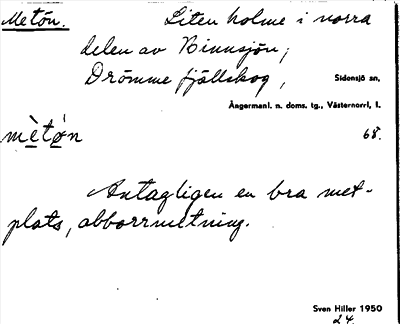 Metön. Liten holme i norra
delen av Binnsjön,
Drömme fjällskog, Sidensjö sn,
Ångermanl. n. doms. tg., Västernorrl. l.
mètø̀n 68.
Antagligen en bra met-
plats, abborrmetning.
Sven Hiller 1950
24.